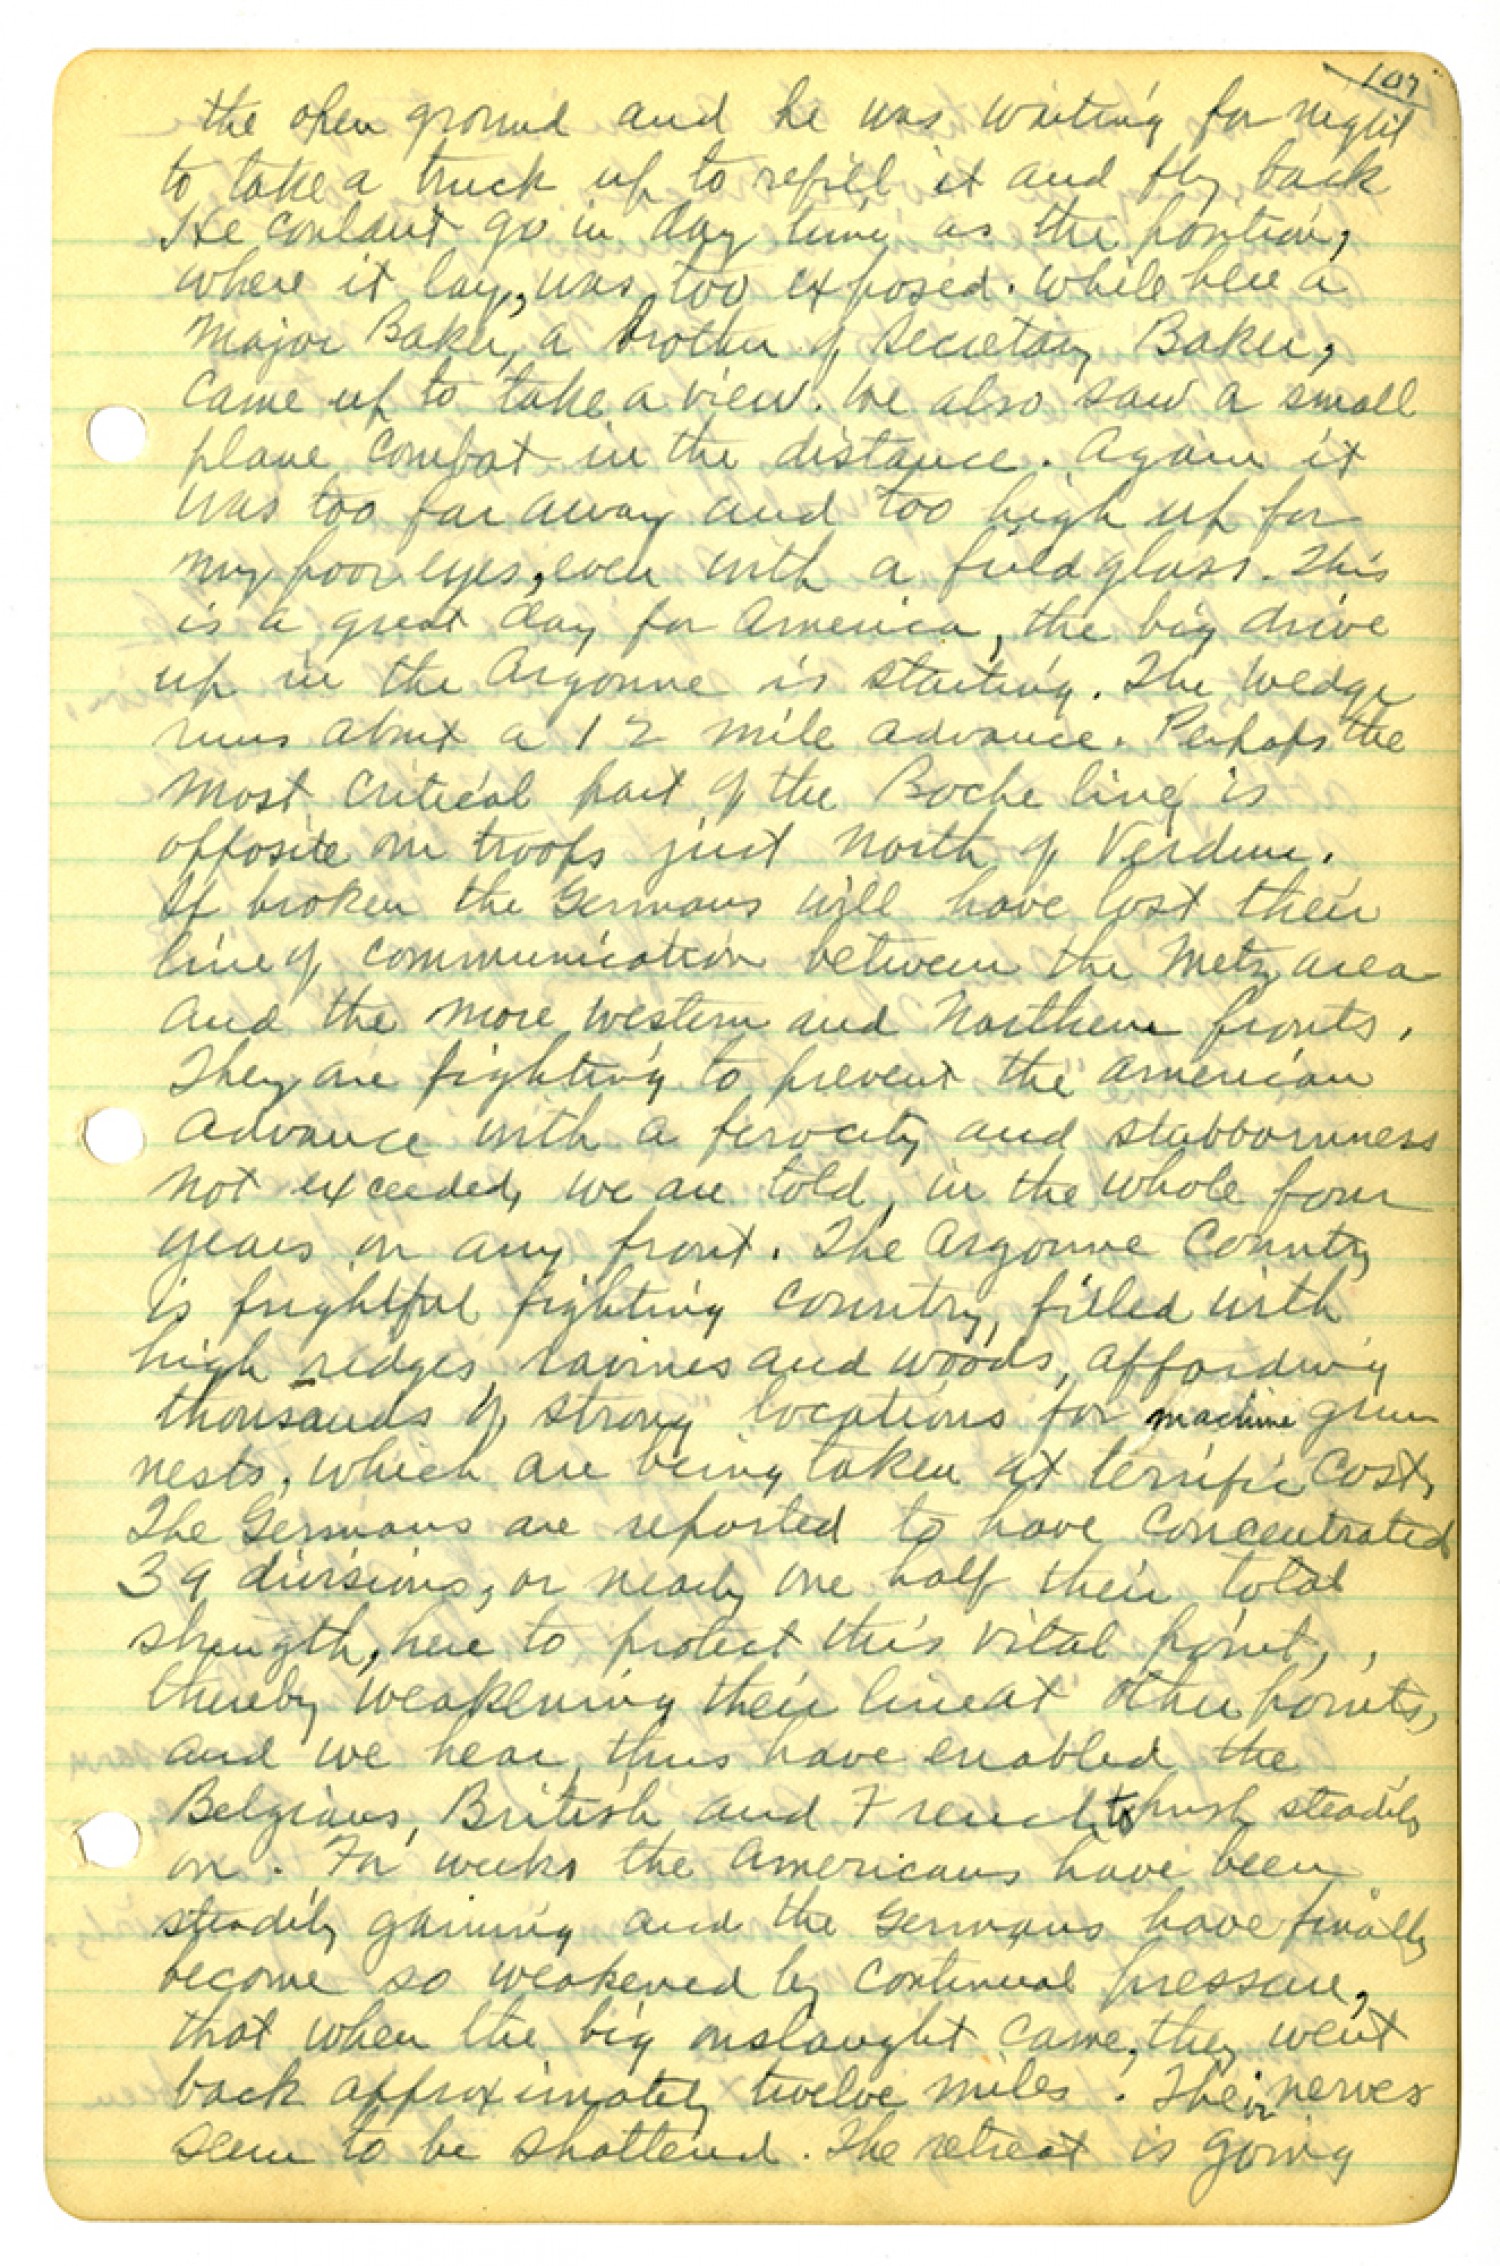 107
the open ground and he was waiting for night
to take a truck up to refill it and fly back
He couldnt go in day time as the position,
where it lay, was too exposed. While here a
Major Baker, a brother of Secretary Baker,
came up to take a view. We also saw a small
plane combat in the distance. Again it
was too far away and too high up for
my poor eyes, even with a field glass. This
is a great day for America, the big drive
up in the Argonne is starting. The wedge
runs about a 12 mile advance. Perhaps the
most critical part of the Boche line is
opposite our troops just north of Verdun.
If broken the Germans will have lost their
line of communication between the Metz area
and the more western and Northern fronts.
They are fighting to prevent the American
advance with a ferocity and stubbornness
not exceeded, we are told, in the whole four
years on any front. The Argonne Country
is frightful fighting country, filled with
high ridges, ravines and woods, affording
thousands of strong locations for machine gun
nests, which are being taken at terrific cost,
The Germans are reported to have concentrated
39 divisions, or nearly one half their total
strength, here to protect this vital point,,
thereby weakening their line at other points,
and we hear, thus have enabled the
Belgians, British and French to push steadily
on. For weeks the Americans have been
steadily gaining and the Germans have finally
become so weakened by continual pressure,
that when the big onslaught came, they went
back approximately twelve miles. Their nerves
seem to be shattered. The retreat is going